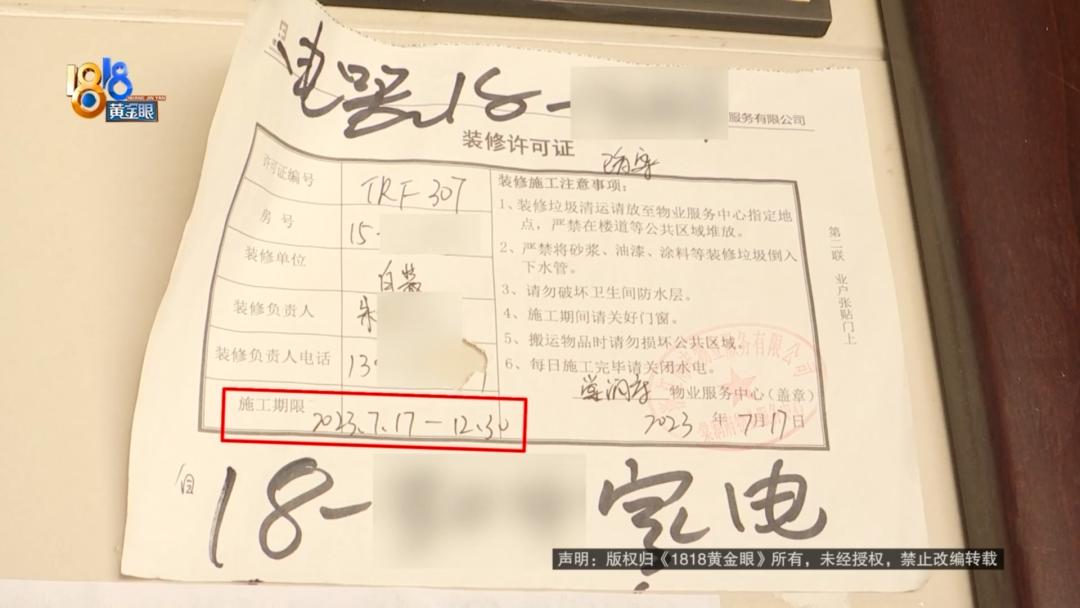 1818
黄金眼
电器 18-
服务有限公司
装修许可证
许可证编号 TRF307
房号 15-
装修单位 自装
装修负责人 朱
装修负责人电话 13
施工期限 2023.7.17-12.30
装修施工注意事项：
1、装修垃圾清运请放至物业服务中心指定地
点，严禁在楼道等公共区域堆放。
2、严禁将砂浆、油漆、涂料等装修垃圾倒入
下水管。
3、请勿破坏卫生间防水层。
4、施工期间请关好门窗。
5、搬运物品时请勿损坏公共区域。
6、每日施工完毕请关闭水电。
物业服务中心（盖章）
2023 年 7月17日
第二联 业户张贴门上
18- 家电
声明：版权归《1818黄金眼》所有，未经授权，禁止改编转载